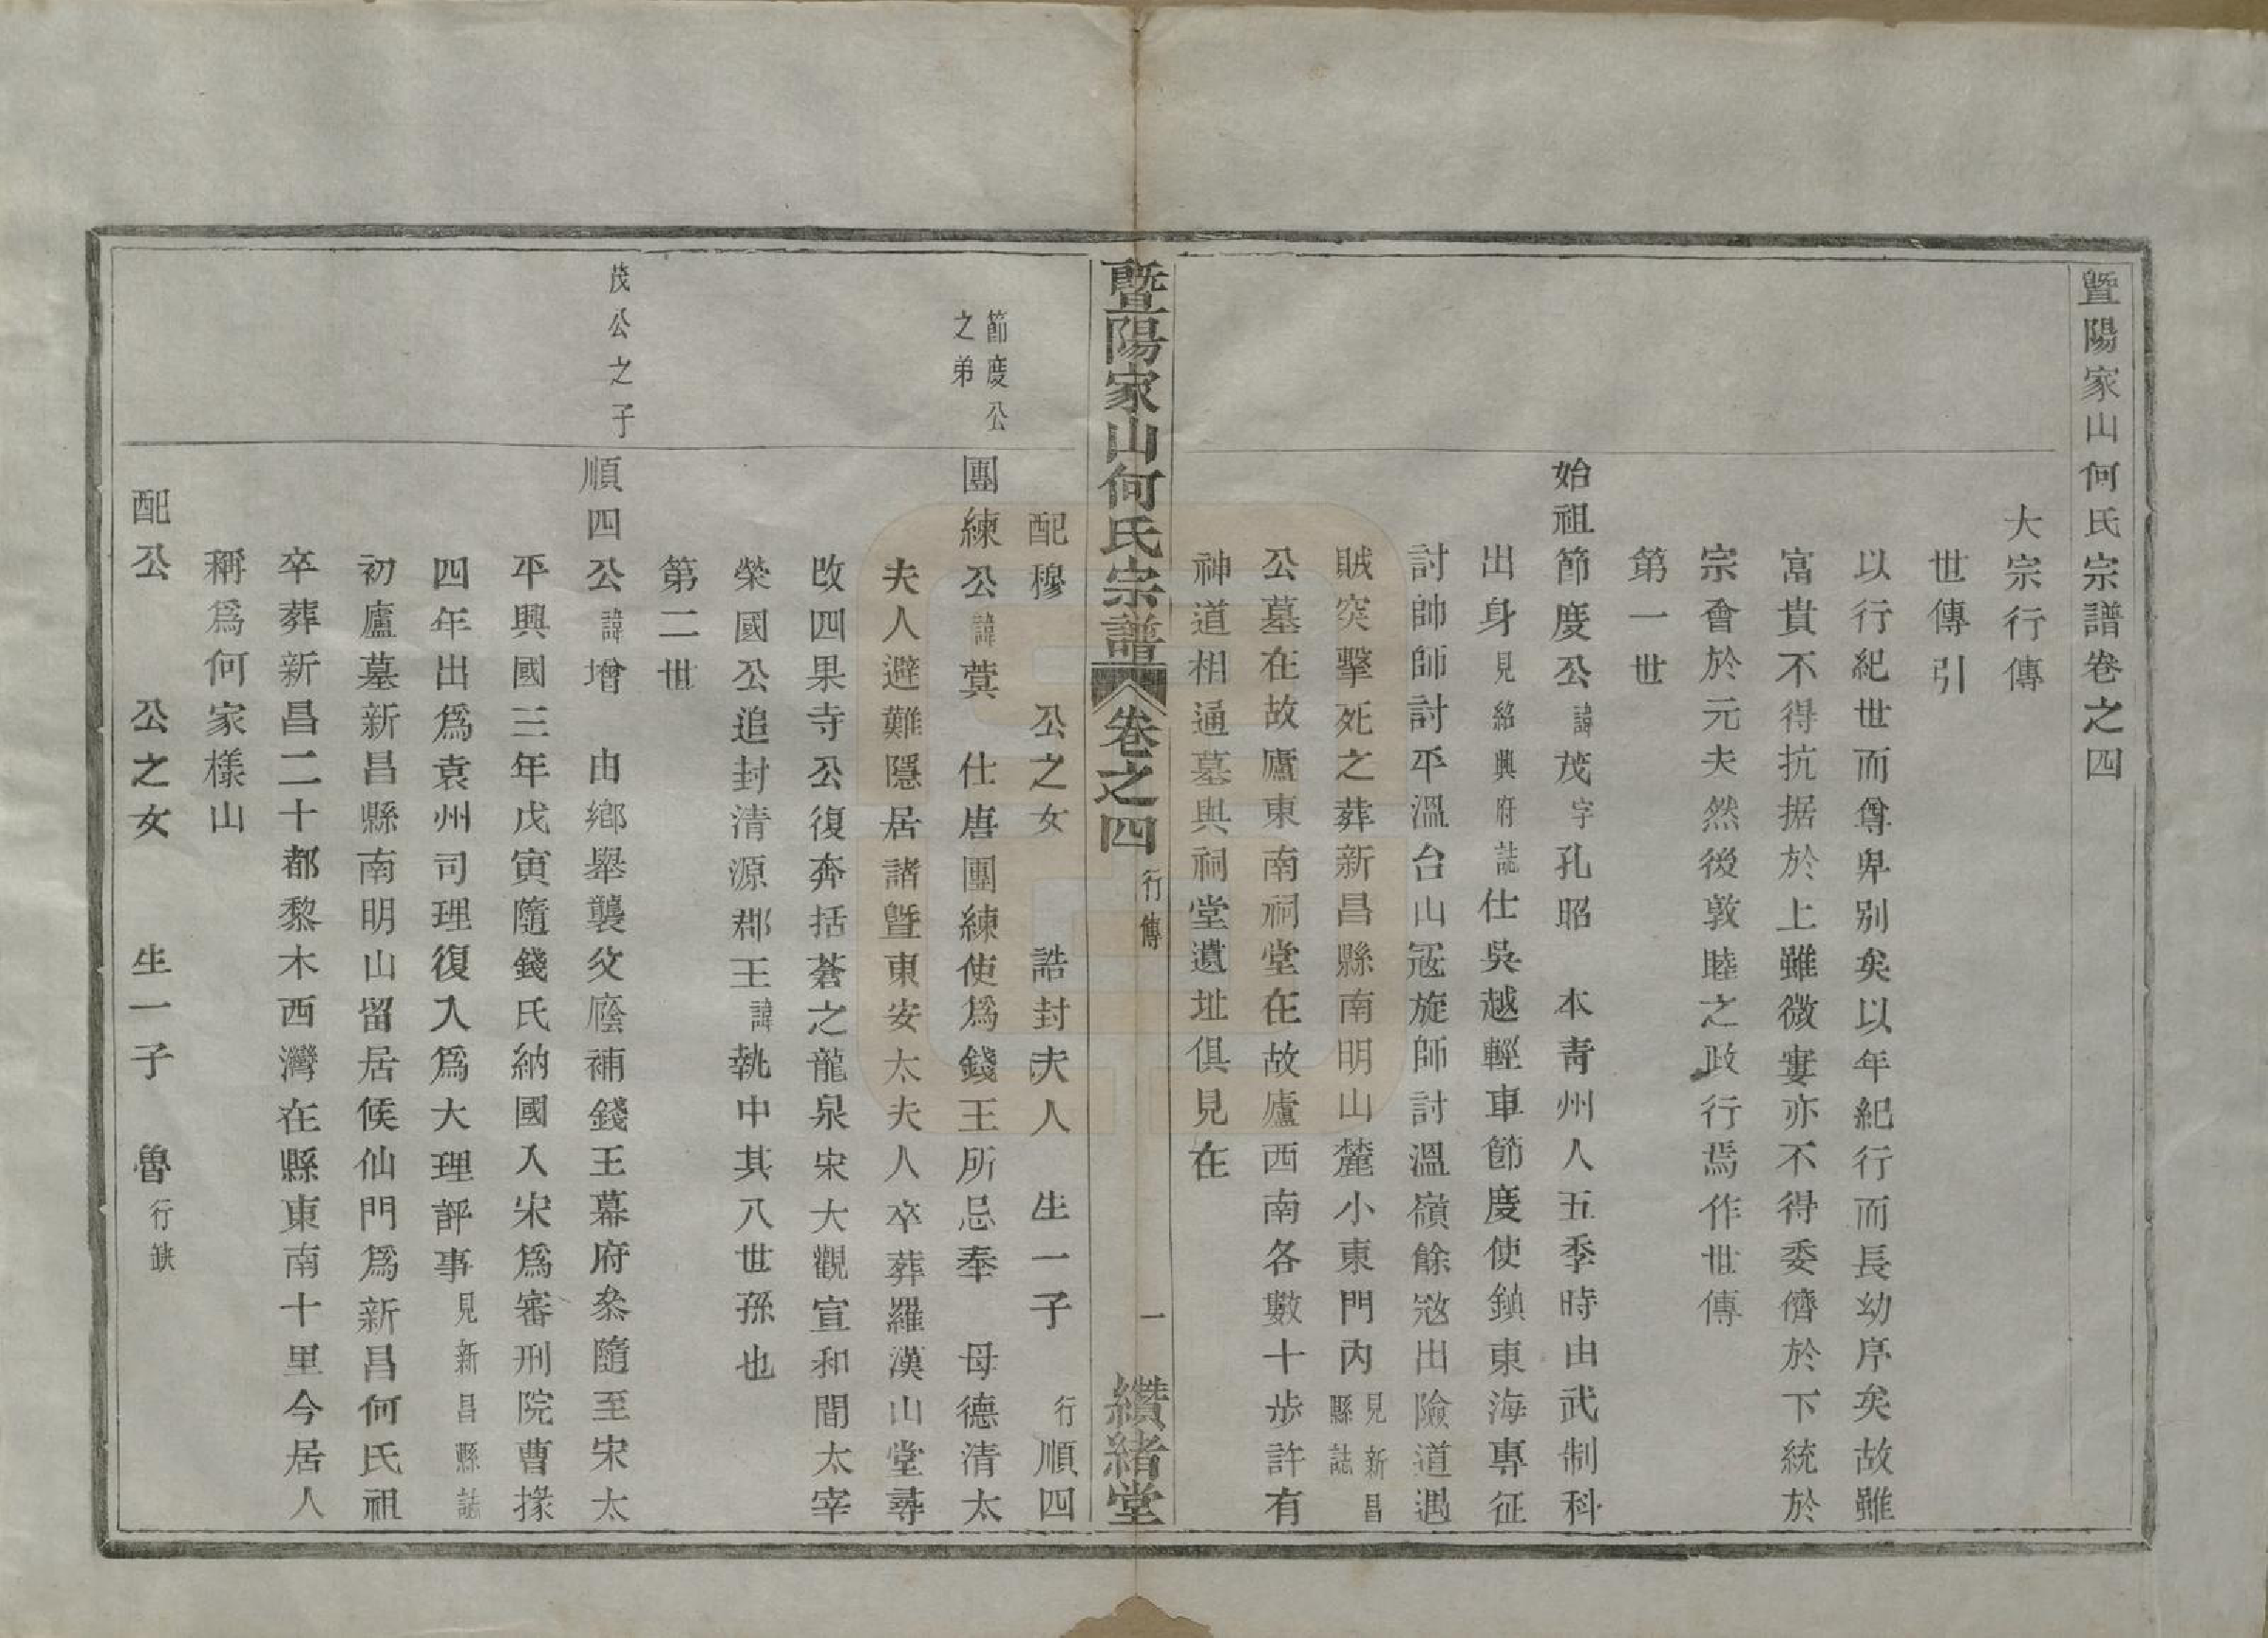 暨陽家山何氏宗譜卷之四
大宗行傳
世傳引
以行紀世而尊卑别矣以年紀行而長幼序矣故雖
富貴不得抗据於上雖微寠亦不得委儕於下統於
宗會於元夫然後敦睦之政行焉作世傳
第一世
始祖節度公諱茂字孔昭 本青州人五季時由武制科
出身見紹興府誌仕吳越輕車節度使鎮東海專征
討帥師討平溫台山冦旋師討溫嶺餘冦出險道遇
賊突擊死之葬新昌縣南明山麓小東門內見新昌縣誌
公墓在故廬東南祠堂在故廬西南各數十步許有
神道相通墓與祠堂遺址俱見在
暨陽家山何氏宗譜 卷之四 行傳 一 纘緒堂
配穆 公之女 誥封夫人 生一子 行順四
節度公之弟
團練公諱蓂 仕唐團練使爲錢王所忌奉 母德清太
夫人避難隱居諸暨東安太夫人卒葬羅漢山堂尋
改四果寺公復奔括蒼之龍泉宋大觀宣和間太宰
榮國公追封清源郡王諱執中其八世孫也
第二世
茂公之子
順四公諱增 由鄉舉襲父廕補錢王幕府叅隨至宋太
平興國三年戊寅隨錢氏納國入宋爲審刑院曹掾
四年出爲袁州司理復入爲大理評事見新昌縣誌
初廬墓新昌縣南明山留居候仙門爲新昌何氏祖
卒葬新昌二十都黎木西灣在縣東南十里今居人
稱爲何家樣山
配公 公之女 生一子 魯行缺